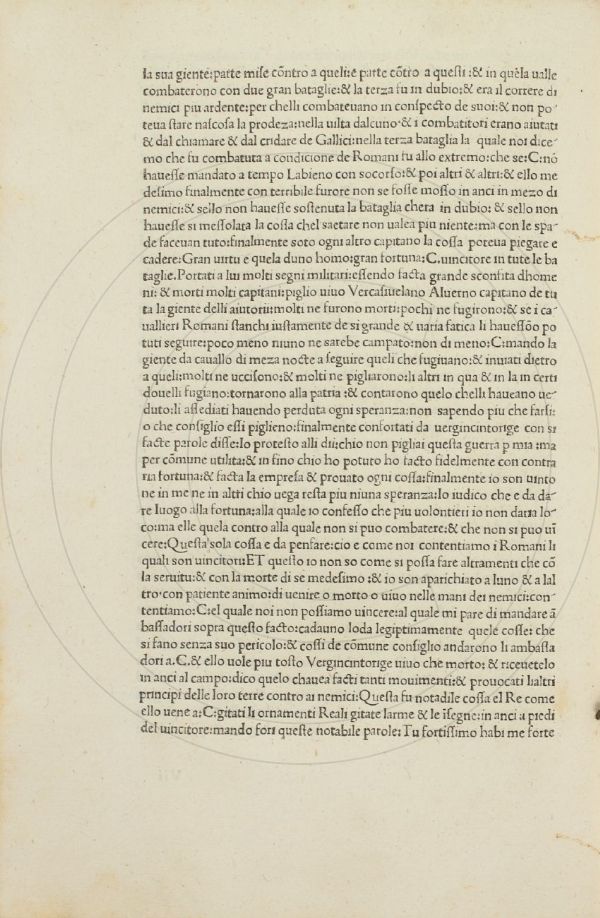 la sua giente:parte mise cōntro a queli:e parte cōtro a questi :& in quela ualle
combaterono con due gran bataglie:& la terza fu in dubio:& era il correre di
nemici piu ardente:per chelli combateuano in conspecto de suoi:& non po-
teua stare nascosa la prodeza:nella uilta dalcuno·& i combatitori erano aiutati
& dal chiamare & dal cridare de Gallici:nella terza bataglia la quale noi dice-
mo che fu combatuta a condicione de Romani fu allo extremo:che se:C:nō
hauesse mandato a tempo Labieno con socorso:& poi altri & altri:& ello me
desimo finalmente con terribile furore non se fosse mosso in anci in mezo di
nemici:& sello non hauesse sostenuta la bataglia chera in dubio: & sello non
hauesse si messolata la cossa chel saetare non ualea piu niente:ma con le spa-
de faceuan tuto:finalmente soto ogni altro capitano la cossa poteua piegare e
cadere:Gran uirtu e quela duno homo:gran fortuna:C.uincitore in tute le ba
taglie.Portati a lui molti segni militari:essendo facta grande sconfita dhome
ni: & morti molti capitani:piglio uiuo Vercasiuelano Aluerno capitano de tu
ta la giente delli aiutorii:molti ne furono morti:pochi ne fugirono:& se i ca-
uallieri Romani stanchi iustamente de si grande & uaria fatica li hauessōo po
tuti seguire:poco meno niuno ne sarebe campato:non di meno:C:mando la
giente da cauallo di meza nocte a seguire queli che fugiuano:& iniuati dietro
a queli:molti ne uccisono:& molti ne pigliarono:li altri in qua & in la in certi
douelli fugiano:tornarono alla patria :& contarono quelo chelli haueano ue-
duto:li assediati hauendo perduta ogni speranza:non sapendo piu che farsi:
o che consiglio essi piglieno:finalmente confortati da uergincintorige con si
facte parole disse:Io protesto alli dii:chio non pigliai questa guerra p mia :ma
per cōmune utilita:& in fino chio ho potuto ho facto fidelmente con contra
ria fortuna:& facta la empresa & prouato ogni cossa:finalmente io son uinto
ne in me ne in altri chio uega resta piu niuna speranza:Io iudico che e da da-
re luogo alla fortuna:alla quale io confesso che piu uolontieri io non daria lo-
co:ma elle quela contro alla quale non si puo combatere:& che non si puo uī
cere:Questa sola cossa e da pensare:cio e come noi contentiamo i Romani li
quali son uincitori:ET questo io non so come si possa fare altramenti che cō
la seruitu:& con la morte di se medesimo :& io son aparichiato a luno & a lal
tro·con patiente animo:di uenire o morto o uiuo nelle mani dei nemici:con-
tentiamo:C:el quale noi non possiamo uincere:al quale mi pare di mandare ā
bassadori sopra questo facto:cadauno loda legiptimamente quele cosse: che
si fano senza suo pericolo:& cossi de cōmune consiglio andarono li ambassa
dori a.C.& ello uole piu tosto Vergincintorige uiuo che morto: & riceuetelo
in anci al campo:dico quelo chauea facti tanti mouimenti:& prouocati lialtri
principi delle loro terre contro ai nemici:Questa fu notadile cossa el Re come
ello uene a:C:gitati li ornamenti Reali gitate larme & le īsegne:in anci a piedi
del uincitore:mando fori queste notabile parole:Tu fortissimo habi me forte